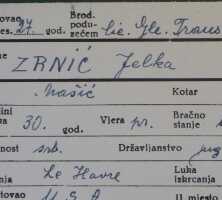 ovao 24. Brod.
es. god. podu-
zećem Cie. Gle. Trans
ne ZRNIĆ Jelka
Našić Kotar
ini 30. god. Vjera pr. Bračno
stanje
nost srb. Državljanstvo jug
nja Le Havre Luka
iskrcanja
tovao U.S.A. II mjesto